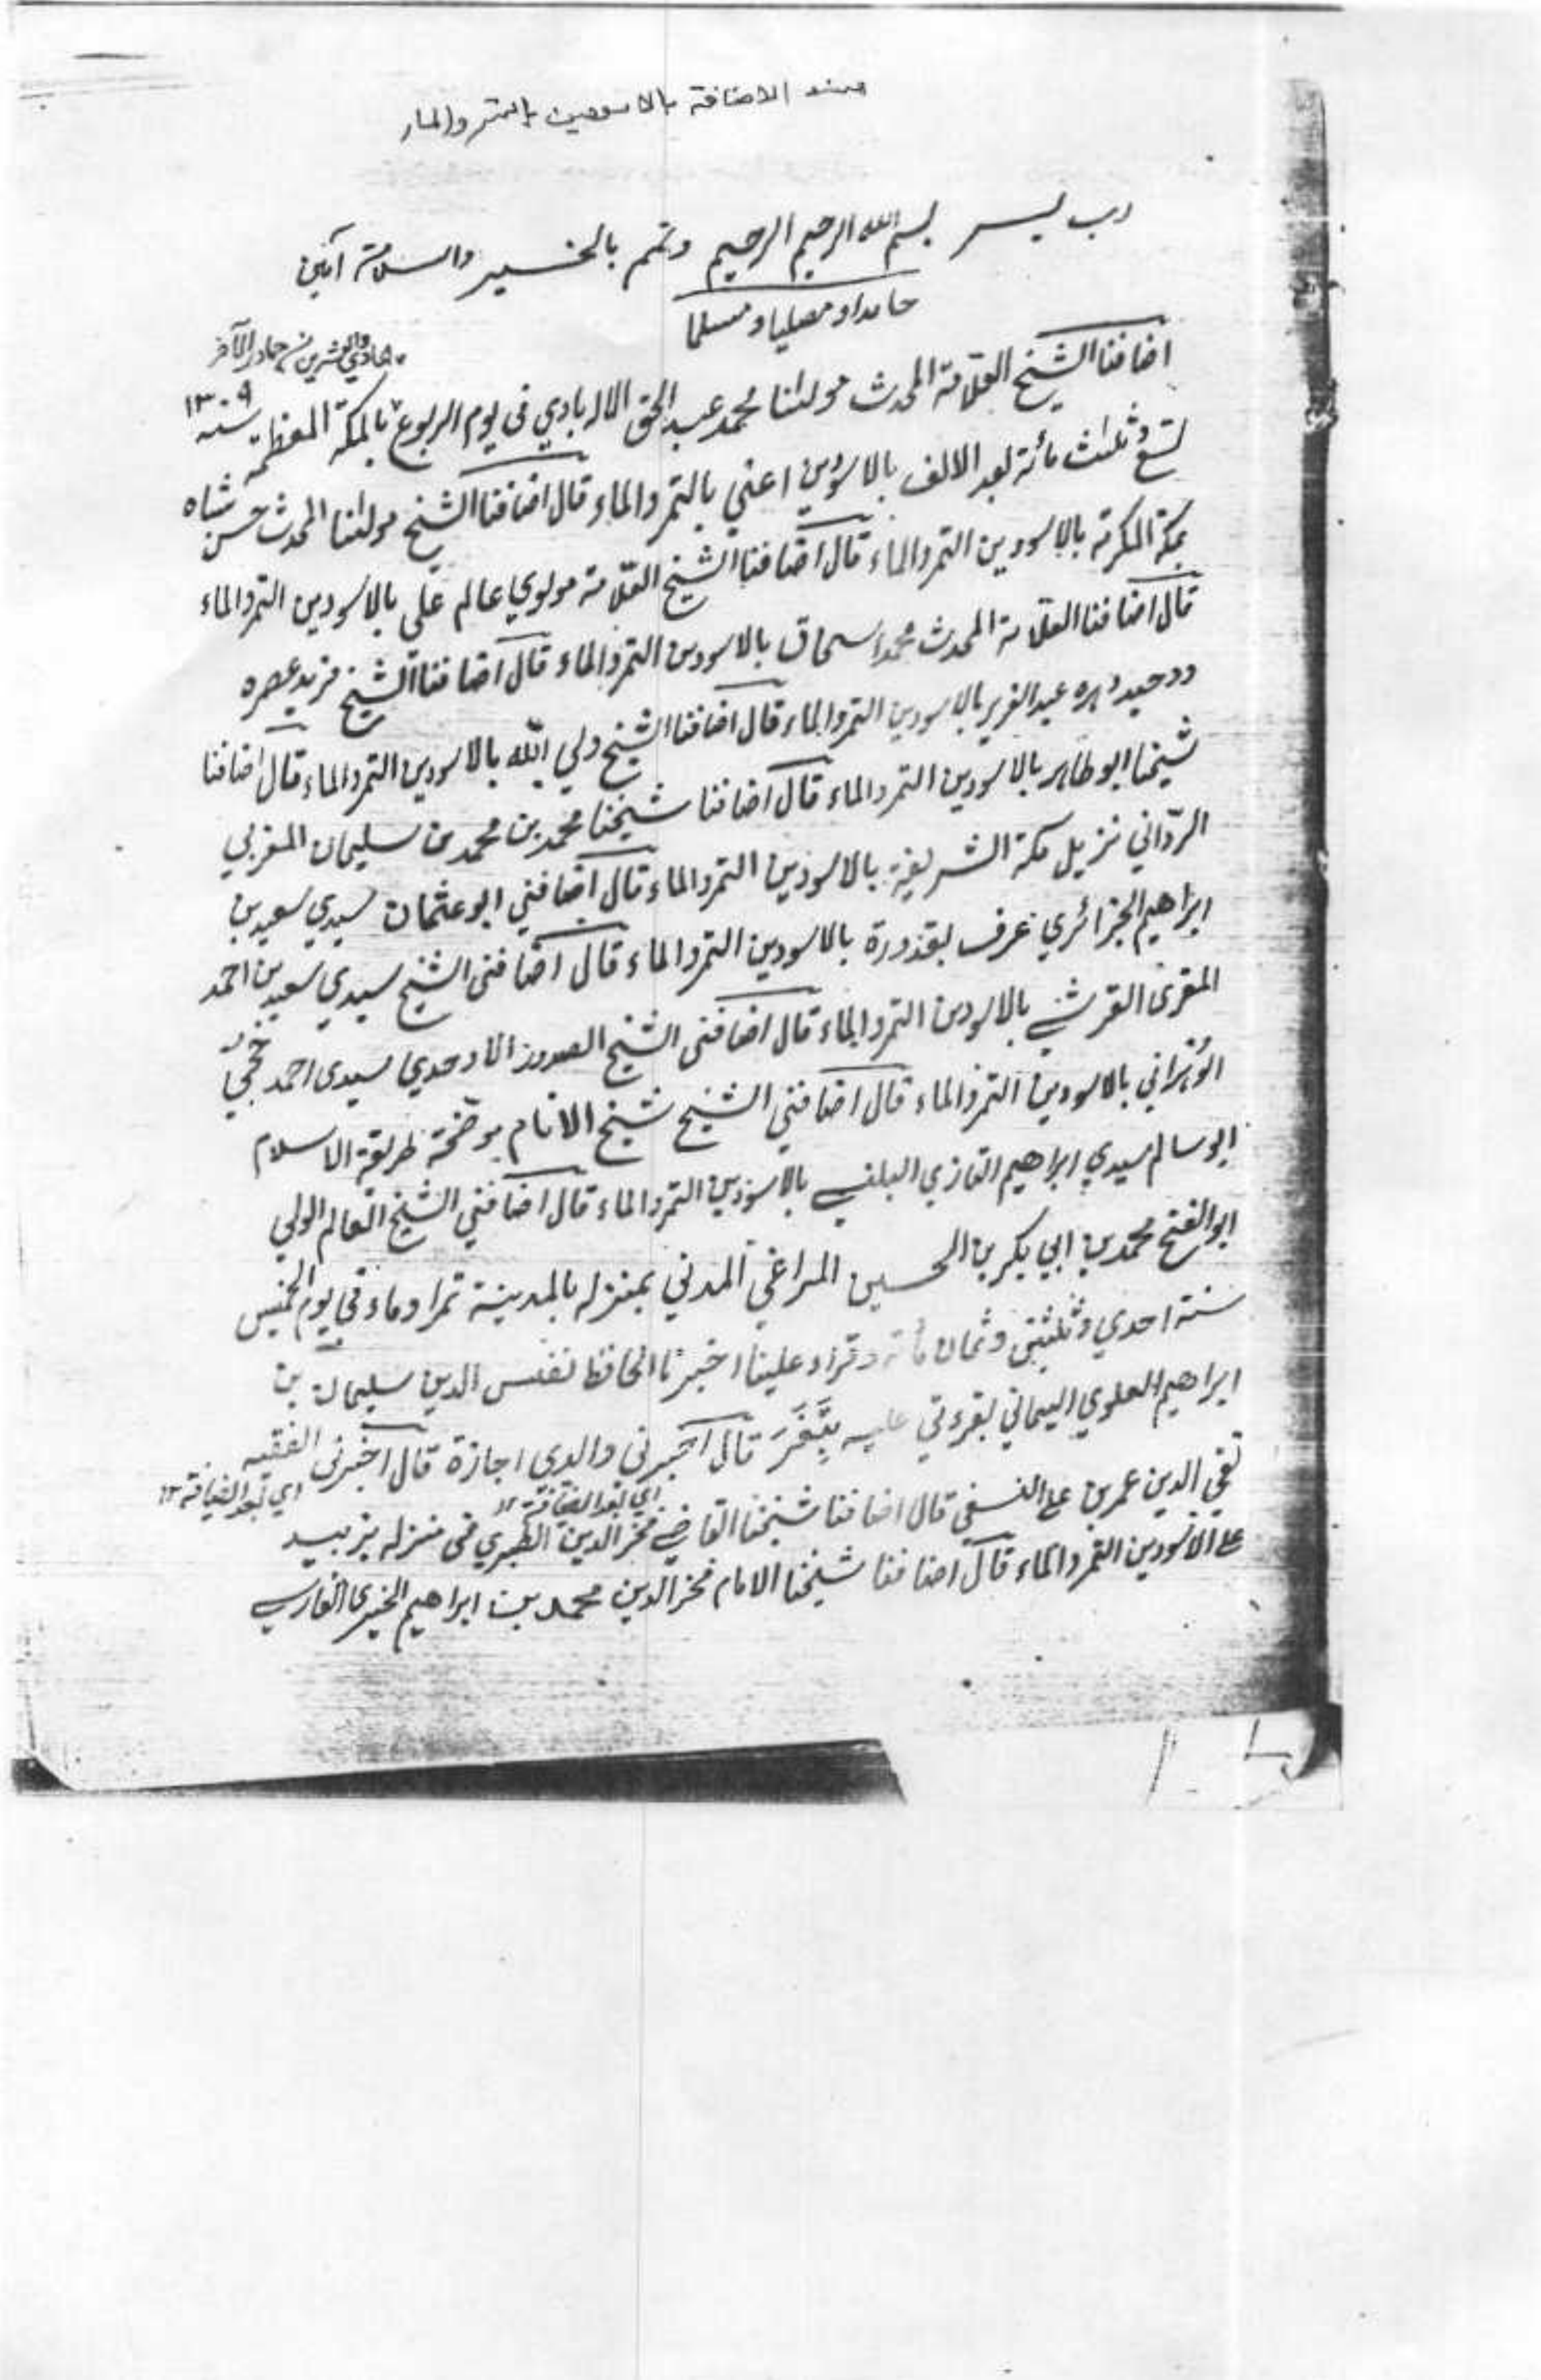 سند الاضافة بالاسودين بالتمر والماء
رب يسر بسم الله الرحيم الرحيم وتمم بالخير والسلامة آمين
حامدا ومصليا ومسلما
هادي والعشرين من جمادى الآخر
اضافنا الشيخ العلامة المحدث مولنا محمد عبد الحق الاله بادي في يوم الربوع بالمكة المعظمة سنه ١٣٠٩
تسع وثلث مائة بعد الالف بالاسودين اعني بالتمر والماء قال اضافنا الشيخ مولنا المحدث حسن شاه
بمكة المكرمة بالاسودين التمر والماء قال اضافنا الشيخ العلامة مولوي عالم علي بالاسودين التمر والماء
قال اضافنا العلامة المحدث محمد اسحاق بالاسودين التمر والماء قال اضافنا الشيخ فريد عصره
ووحيد دهره عبد العزيز بالاسودين التمر والماء قال اضافنا الشيخ ولي الله بالاسودين التمر والماء قال اضافنا
شيخنا ابو طاهر بالاسودين التمر والماء قال اضافنا شيخنا محمد بن محمد بن سليمان المغربي
الرداني نزيل مكة الشريفة بالاسودين التمر والماء قال اضافني ابو عثمان سيدي سعيد بن
ابراهيم الجزائري عرف بقدورة بالاسودين التمر والماء قال اضافني الشيخ سيدي سعيد بن احمد
المقرى القرشي بالاسودين التمر والماء قال اضافني الشيخ الاوحدي سيدى احمد حجي
الوهراني بالاسودين التمر والماء قال اضافني الشيخ شيخ الانام موضحة طريقة الاسلام
ابو سالم سيدي ابراهيم التازي بالاسودين التمر والماء قال اضافني الشيخ العالم الولي
ابو الفتح محمد بن ابي بكر بن الحسين المراغي المدني بمنزله بالمدينة تمرا وماء في يوم الخميس
سنة احدي وثلثين وثمان مائة وقراء علينا اخبرنا الحافظ نفيس الدين سليمان بن
ابراهيم العلوي اليماني بقرءتي عليه بتعز قال اخبرني والدي اجازة قال اخبرني الفقيه
اي بعد الضيافة ١٢ اي بعد الضيافة ١٢
تقي الدين عمر بن علي قال اضافنا شيخنا القاضي فخر الدين الطبري في منزله بزبيد
على الاسودين التمر والماء قال اضافنا شيخنا الامام فخر الدين محمد بن ابراهيم الخبري الفارسي